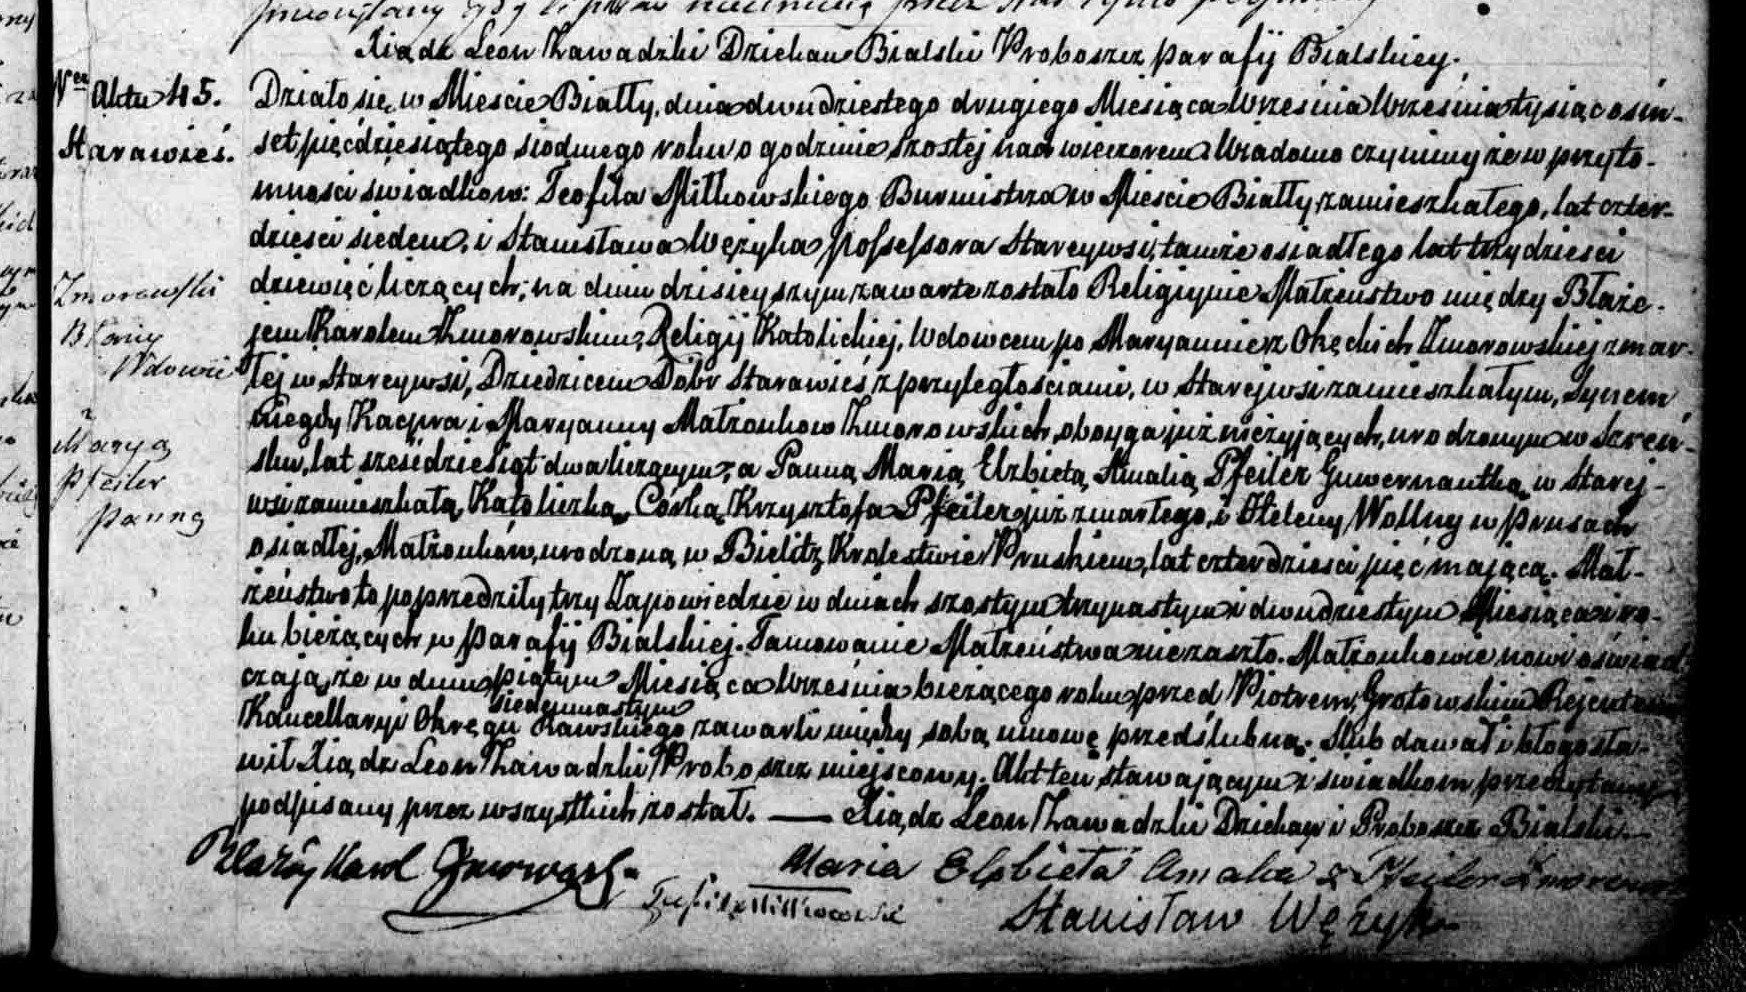 Xiądz Leon Zawadzki Dziekan Bialski Proboszcz parafij Bialskiey.
Ner Aktu 45.
Starawieś.
Działo się w Mieście Biały, dnia dwudziestego drugiego Miesiąca Września Września tysiąc osm-
set pięćdziesiątego siodmego roku o godzinie szostej nad wieczorem Wiadomo czynimy że w przyto-
mności świadkow: Teofila Milkowskiego Burmistrza w Mieście Biały zamieszkałego, lat czter-
dzieści siedem, i Stanisława Wężyka possessora Stareywsi, tamże osiadłego lat trzydzieści
dziewięć liczących, na dniu dzisieyszym zawarte zostało Religiynie Małżeństwo między Błaże-
jem Karolem Zmorowskim, Religij Katolickiej, Wdowcem po Maryannie z Okęckich Zmorowskiej zmar-
łej w Stareywsi, Dziedzicem Dobr Starawieś z przyległościami, w Starejwsi zamieszkałym, Synem
niegdy Kacpra i Maryanny Małżonkow Zmorowskich, oboyga już nieżyjących, urodzonym w Szreń-
sku, lat sześćdziesiąt dwa liczącym, a Panną Marią Elżbietą Amalią Pfeiler Guwernantką w Starej-
wsi zamieszkałą, Katoliczką, Córką Krzysztofa Pfeiler już zmarłego, i Heleny Wollny w Prusach
osiadłej, Małżonków, urodzoną w Bielitz Krolestwie Pruskiem, lat czterdzieści pięć mającą. Mał-
żeństwo to poprzedziły trzy Zapowiedzie w dniach szostym trzynastym i dwudziestym Miesiąca i ro-
ku bieżących w parafij Bialskiej. Tamowanie Małżeństwa nie zaszło. Małżonkowie nowi oświad-
czają, że w dniu piątym Miesiąca Września bieżącego roku przed Piotrem Grotowskim Rejentem
siedemnastym
Kancellaryi Okręgu Rawskiego zawarli między sobą umowę przedślubną. Slub dawał i błogosła-
wił Xiądz Leon Zawadzki Proboszcz miejscowy. Akt ten stawającym i świadkom przeczytany
podpisany przez wszystkich został. — Xiądz Leon Zawadzki Dziekan i Proboszcz Bialski
Zmorowski
Błażej
Wdowiec
z
Maryą
Pfeiler
Panną
Błażéj Karol Zmorowski
Maria Elżbieta Amalia z Pfeiler Zmorowska
Teofil Milkowski
Stanisław Wężyk